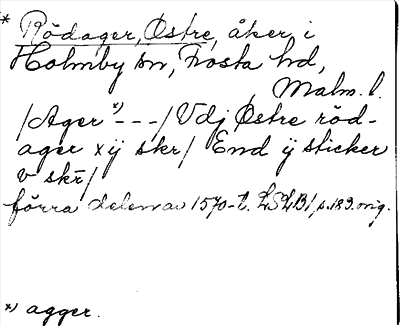 * Rödager, Östre, åker i
Holmby sn, Frosta hd,
Malm. l.
/Ager x) - - - / Vdj Østre röd-
ager xÿ skr/ End ÿ sticker
v skr̄/
förra delen av 1570-t. LSLB1, p. 189. orig.
x) agger.